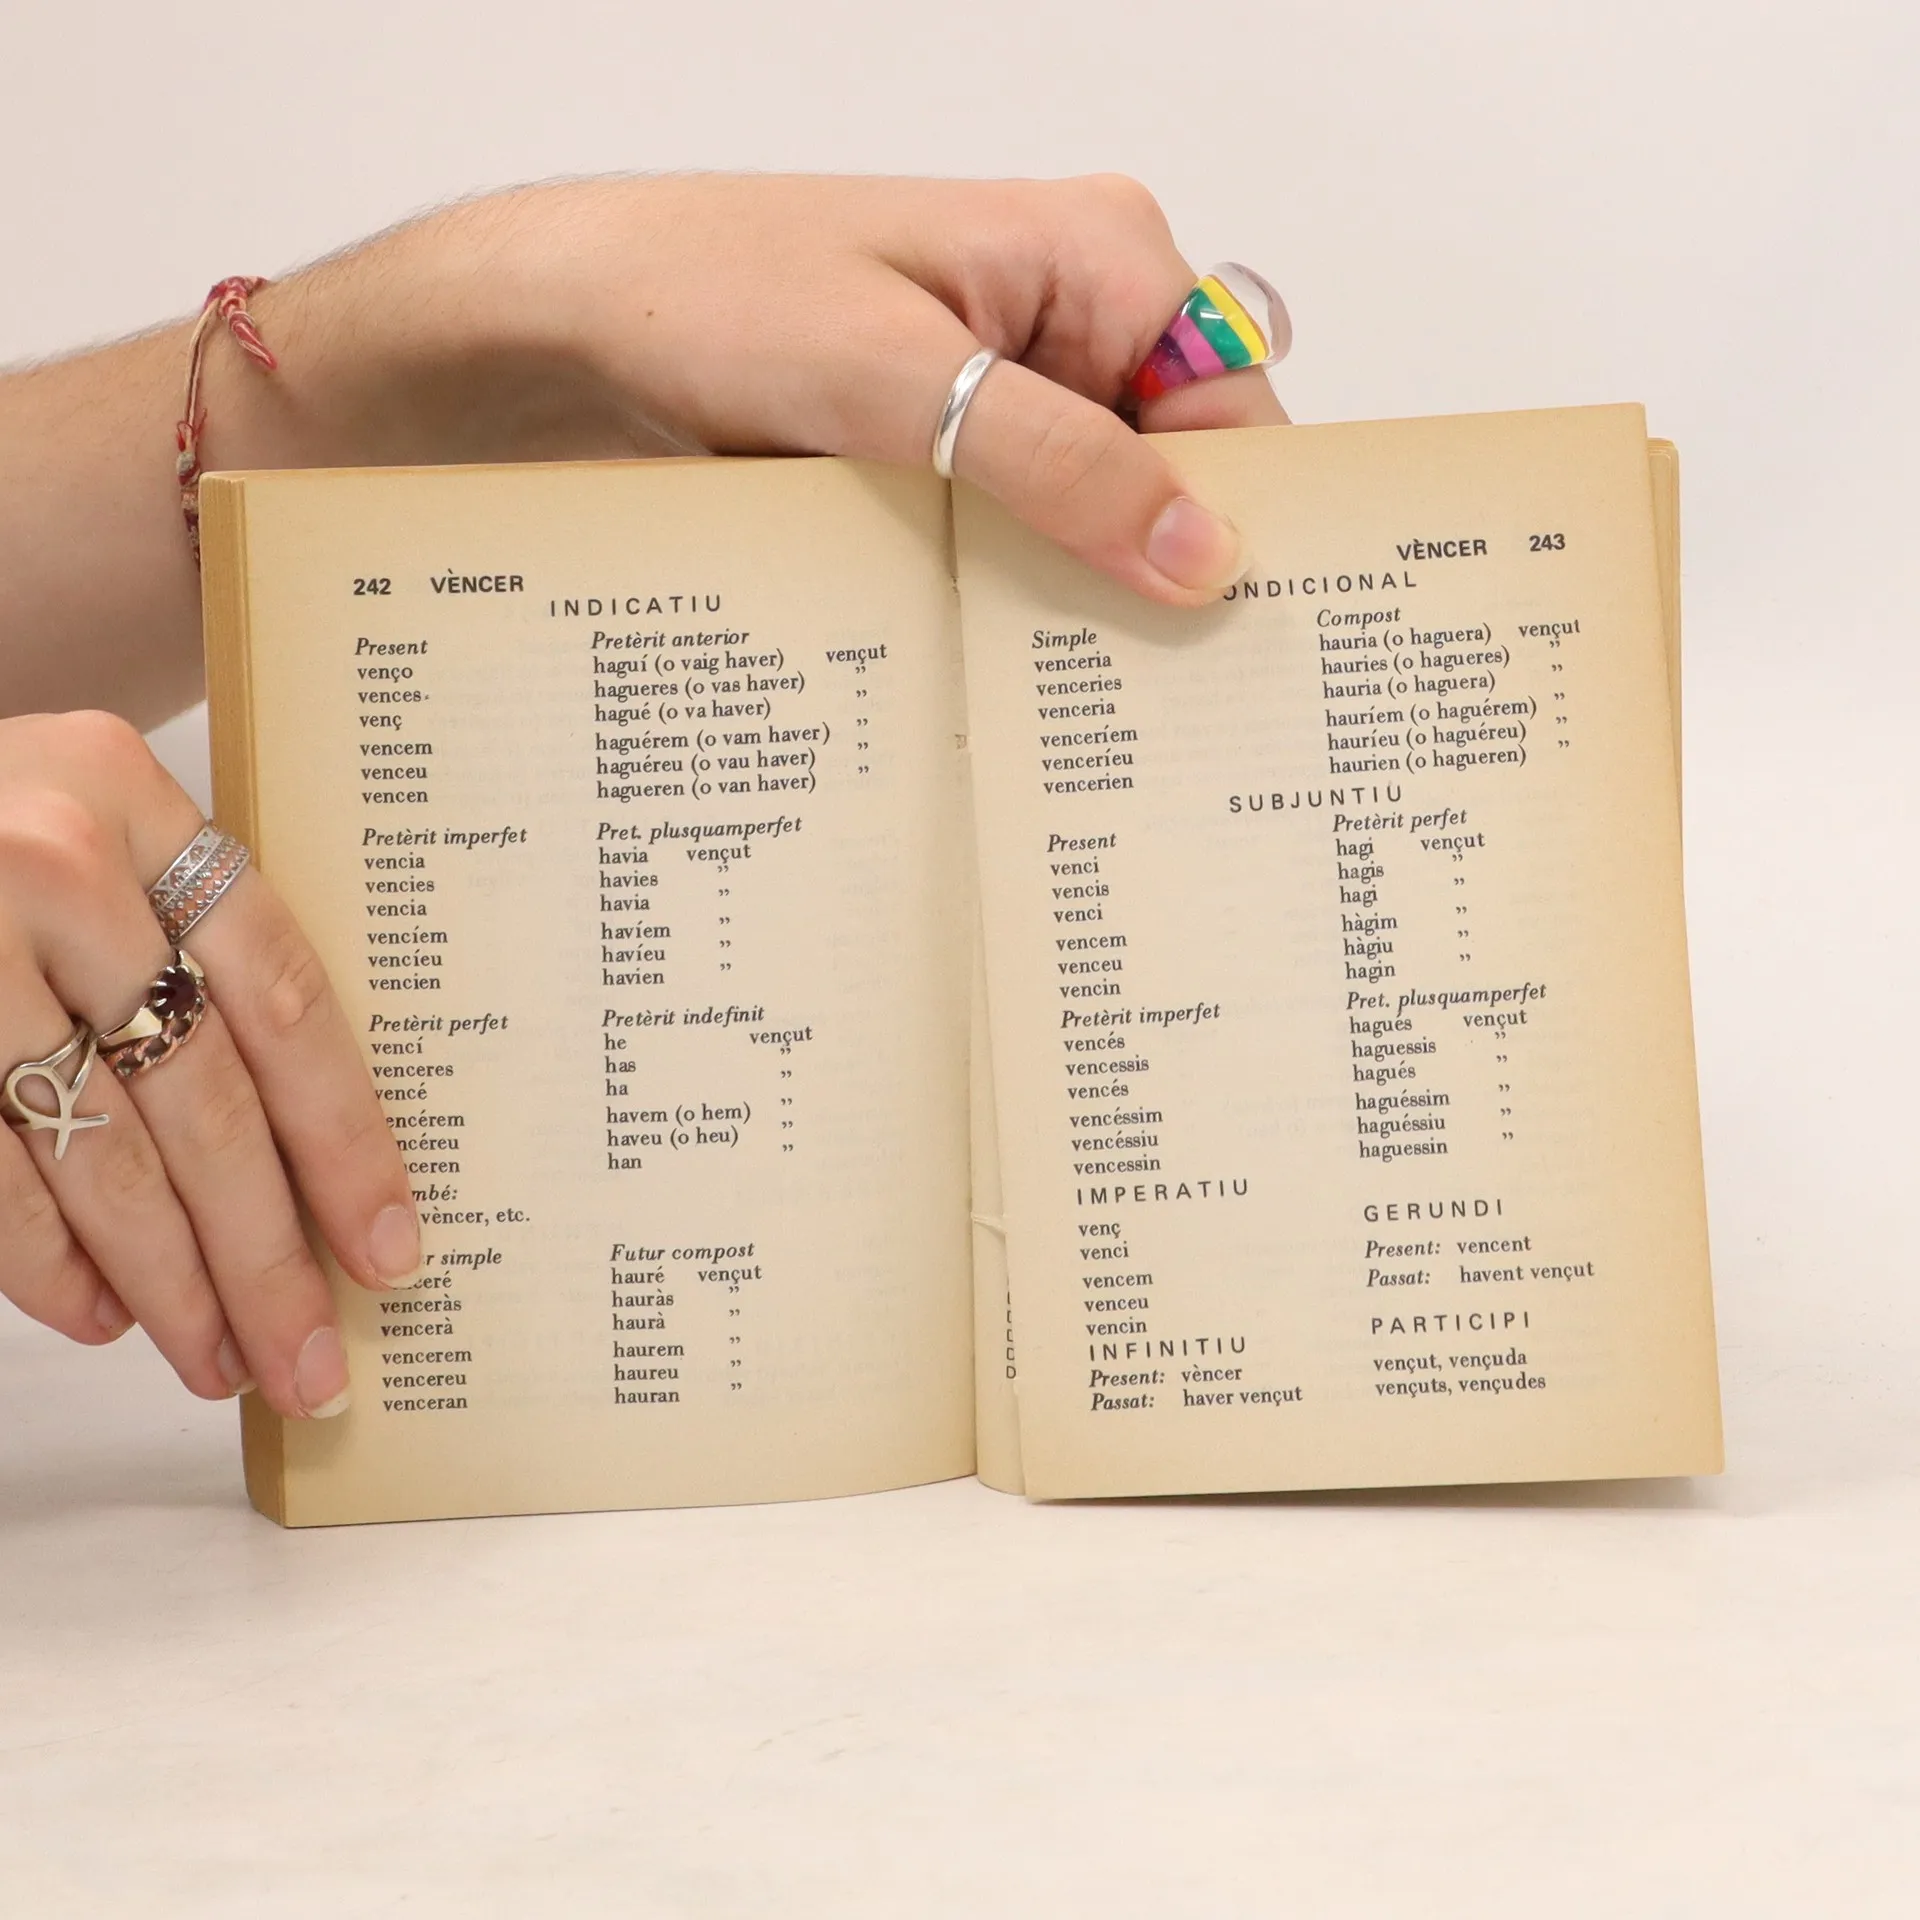 242 VÈNCER
INDICATIU
Present
venço
vences
venç
vencem
venceu
vencen
Pretèrit anterior
haguí (o vaig haver) vençut
hagueres (o vas haver) ”
hagué (o va haver) ”
haguérem (o vam haver) ”
haguéreu (o vau haver) ”
hagueren (o van haver) ”
Pretèrit imperfet
vencia
vencies
vencia
vencíem
vencíeu
vencien
Pret. plusquamperfet
havia vençut
havies ”
havia ”
havíem ”
havíeu ”
havien ”
Pretèrit perfet
vencí
venceres
vencé
encérem
ncéreu
ceren
mbé:
vèncer, etc.
Pretèrit indefinit
he vençut
has ”
ha ”
havem (o hem) ”
haveu (o heu) ”
han ”
r simple
ceré
venceràs
vencerà
vencerem
vencereu
venceran
Futur compost
hauré vençut
hauràs ”
haurà ”
haurem ”
haureu ”
hauran ”
VÈNCER 243
ONDICIONAL
Simple
venceria
venceries
venceria
venceríem
venceríeu
vencerien
Compost
hauria (o haguera) vençut
hauries (o hagueres) ”
hauria (o haguera) ”
hauríem (o haguérem) ”
hauríeu (o haguéreu) ”
haurien (o hagueren) ”
SUBJUNTIU
Present
venci
vencis
venci
vencem
venceu
vencin
Pretèrit perfet
hagi vençut
hagis ”
hagi ”
hàgim ”
hàgiu ”
hagin ”
Pretèrit imperfet
vencés
vencessis
vencés
vencéssim
vencéssiu
vencessin
Pret. plusquamperfet
hagués vençut
haguessis ”
hagués ”
haguéssim ”
haguéssiu ”
haguessin ”
IMPERATIU
venç
venci
vencem
venceu
vencin
GERUNDI
Present: vencent
Passat: havent vençut
INFINITIU
Present: vèncer
Passat: haver vençut
PARTICIPI
vençut, vençuda
vençuts, vençudes